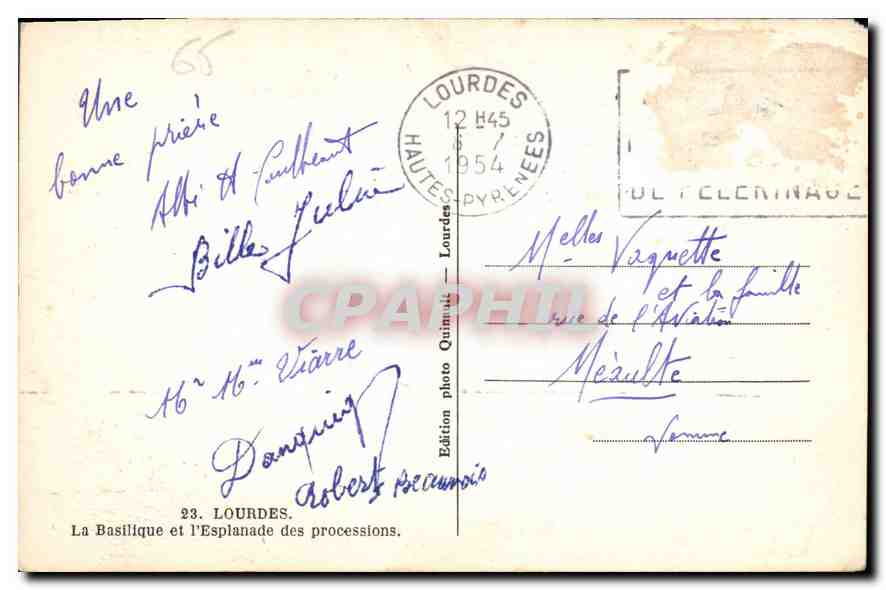 65
Une
bonne prière
Billes Julien
Mr Mme Viarre
Danquigny
Robert Beaumois
23. LOURDES.
La Basilique et l'Esplanade des processions.
Edition photo Quinault — Lourdes
LOURDES
12 H45
1954
HAUTES-PYRENEES
DE PELERINAGE
Melles Vaquette
et la famille
rue de l'Aviation
Méaulte
Somme
CPAPHIL